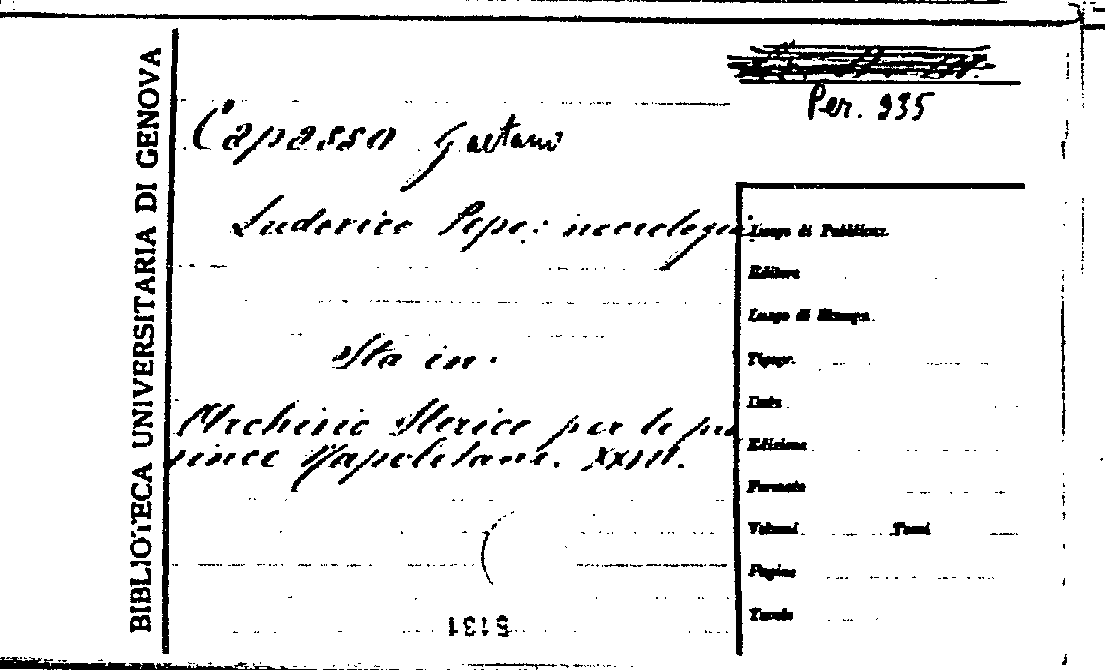 BIBLIOTECA UNIVERSITARIA DI GENOVA
Per. 935
Capasso Gaetano
Ludovico Pepe: necrologia
Sta in:
Archivio Storico per le pro
vince Napoletane.
Luogo di Pubblicaz.
Editore
Luogo di Stampa
Tipogr.
Data
Edizione
Formato
Volumi Tomi
Pagine
Tavole
5131